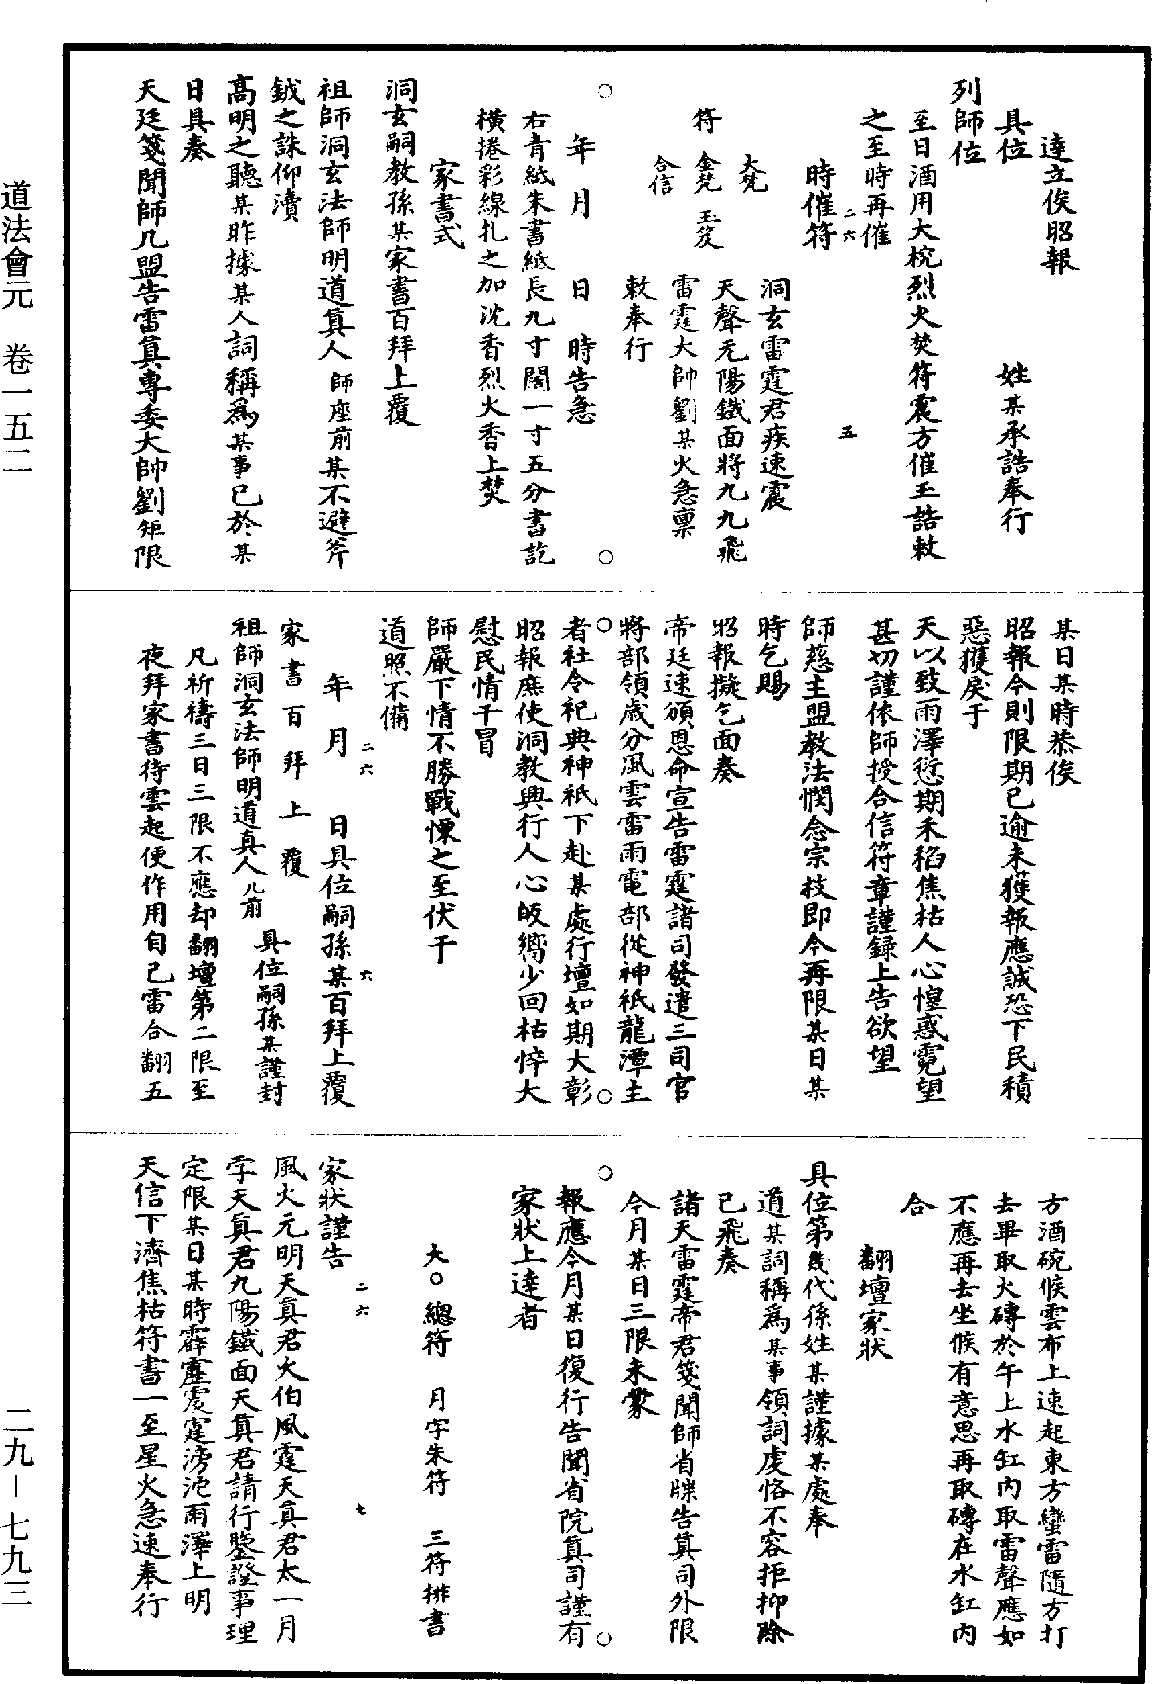 達立俟昭報
具位　姓某承誥奉行
列師位
至日酒用大椀烈火焚符震方催玉誥敕
之至時再催
二六
五
時催符
洞玄雷霆君疾速震
大梵
天聲元陽鐵面將九九飛
符　金梵　玉笈
雷霆大帥劉某火急稟
合信
敕奉行
年　月　日　時告急
右青紙朱書紙長九寸闊一寸五分書訖
橫捲彩線扎之加沈香烈火香上焚
家書式
洞玄嗣教孫某家書百拜上覆
祖師洞玄法師明道真人　師座前某不避斧
鉞之誅仰瀆
高明之聽某昨據某人詞稱為某事已於某
日具奏
天廷箋聞師几盟告雷真專委大帥劉矩限
某日某時恭俟
昭報今則限期已逾未獲報應誠恐下民積
惡獲戾于
天以致雨澤愆期禾稻焦枯人心惶惑霓望
甚切謹依師授合信符章謹錄上告欲望
師慈主盟教法憫念宗技即今再限某日某
時乞賜
昭報擬乞面奏
帝廷速頒恩命宣告雷霆諸司發遣三司官
將部領歲分風雲雷雨電部從神祇龍潭主
者社令祀典神祇下赴某處行壇如期大彰
昭報庶使洞教興行人心皈嚮少回枯悴大
慰民情干冒
師嚴下情不勝戰慄之至伏干
道照不備
二六
六
年　月　日具位嗣孫某百拜上覆
家書百拜上覆
祖師洞玄法師明道真人几前　具位嗣孫某謹封
凡祈禱三日三限不應却翻壇第二限至
夜拜家書待雲起便作用自己雷合翻五
方酒碗候雲布上速起東方蠻雷隨方打
去畢取火磚於午上水缸內取雷聲應如
不應再去坐候有意思再取磚在水缸內
合
翻壇家狀
具位第幾代孫姓某謹據某處奉
道某詞稱為某事領詞虔恪不容拒抑除
已飛奏
諸天雷霆帝君箋聞師省牒告真司外限
今月某日三限未蒙
報應今月某日復行告聞省院真司謹有
家狀上達者
大○總符　月孛朱符　三符拼書
家狀謹告
二六
七
風火元明天真君火伯風霆天真君太一月
孛天真君九陽鐵面天真君請行鑒證事理
定限某日某時霹靂震霆滂沱雨澤上明
天信下濟焦枯符書一至星火急速奉行
道法會元　卷一五二
二九—七九三